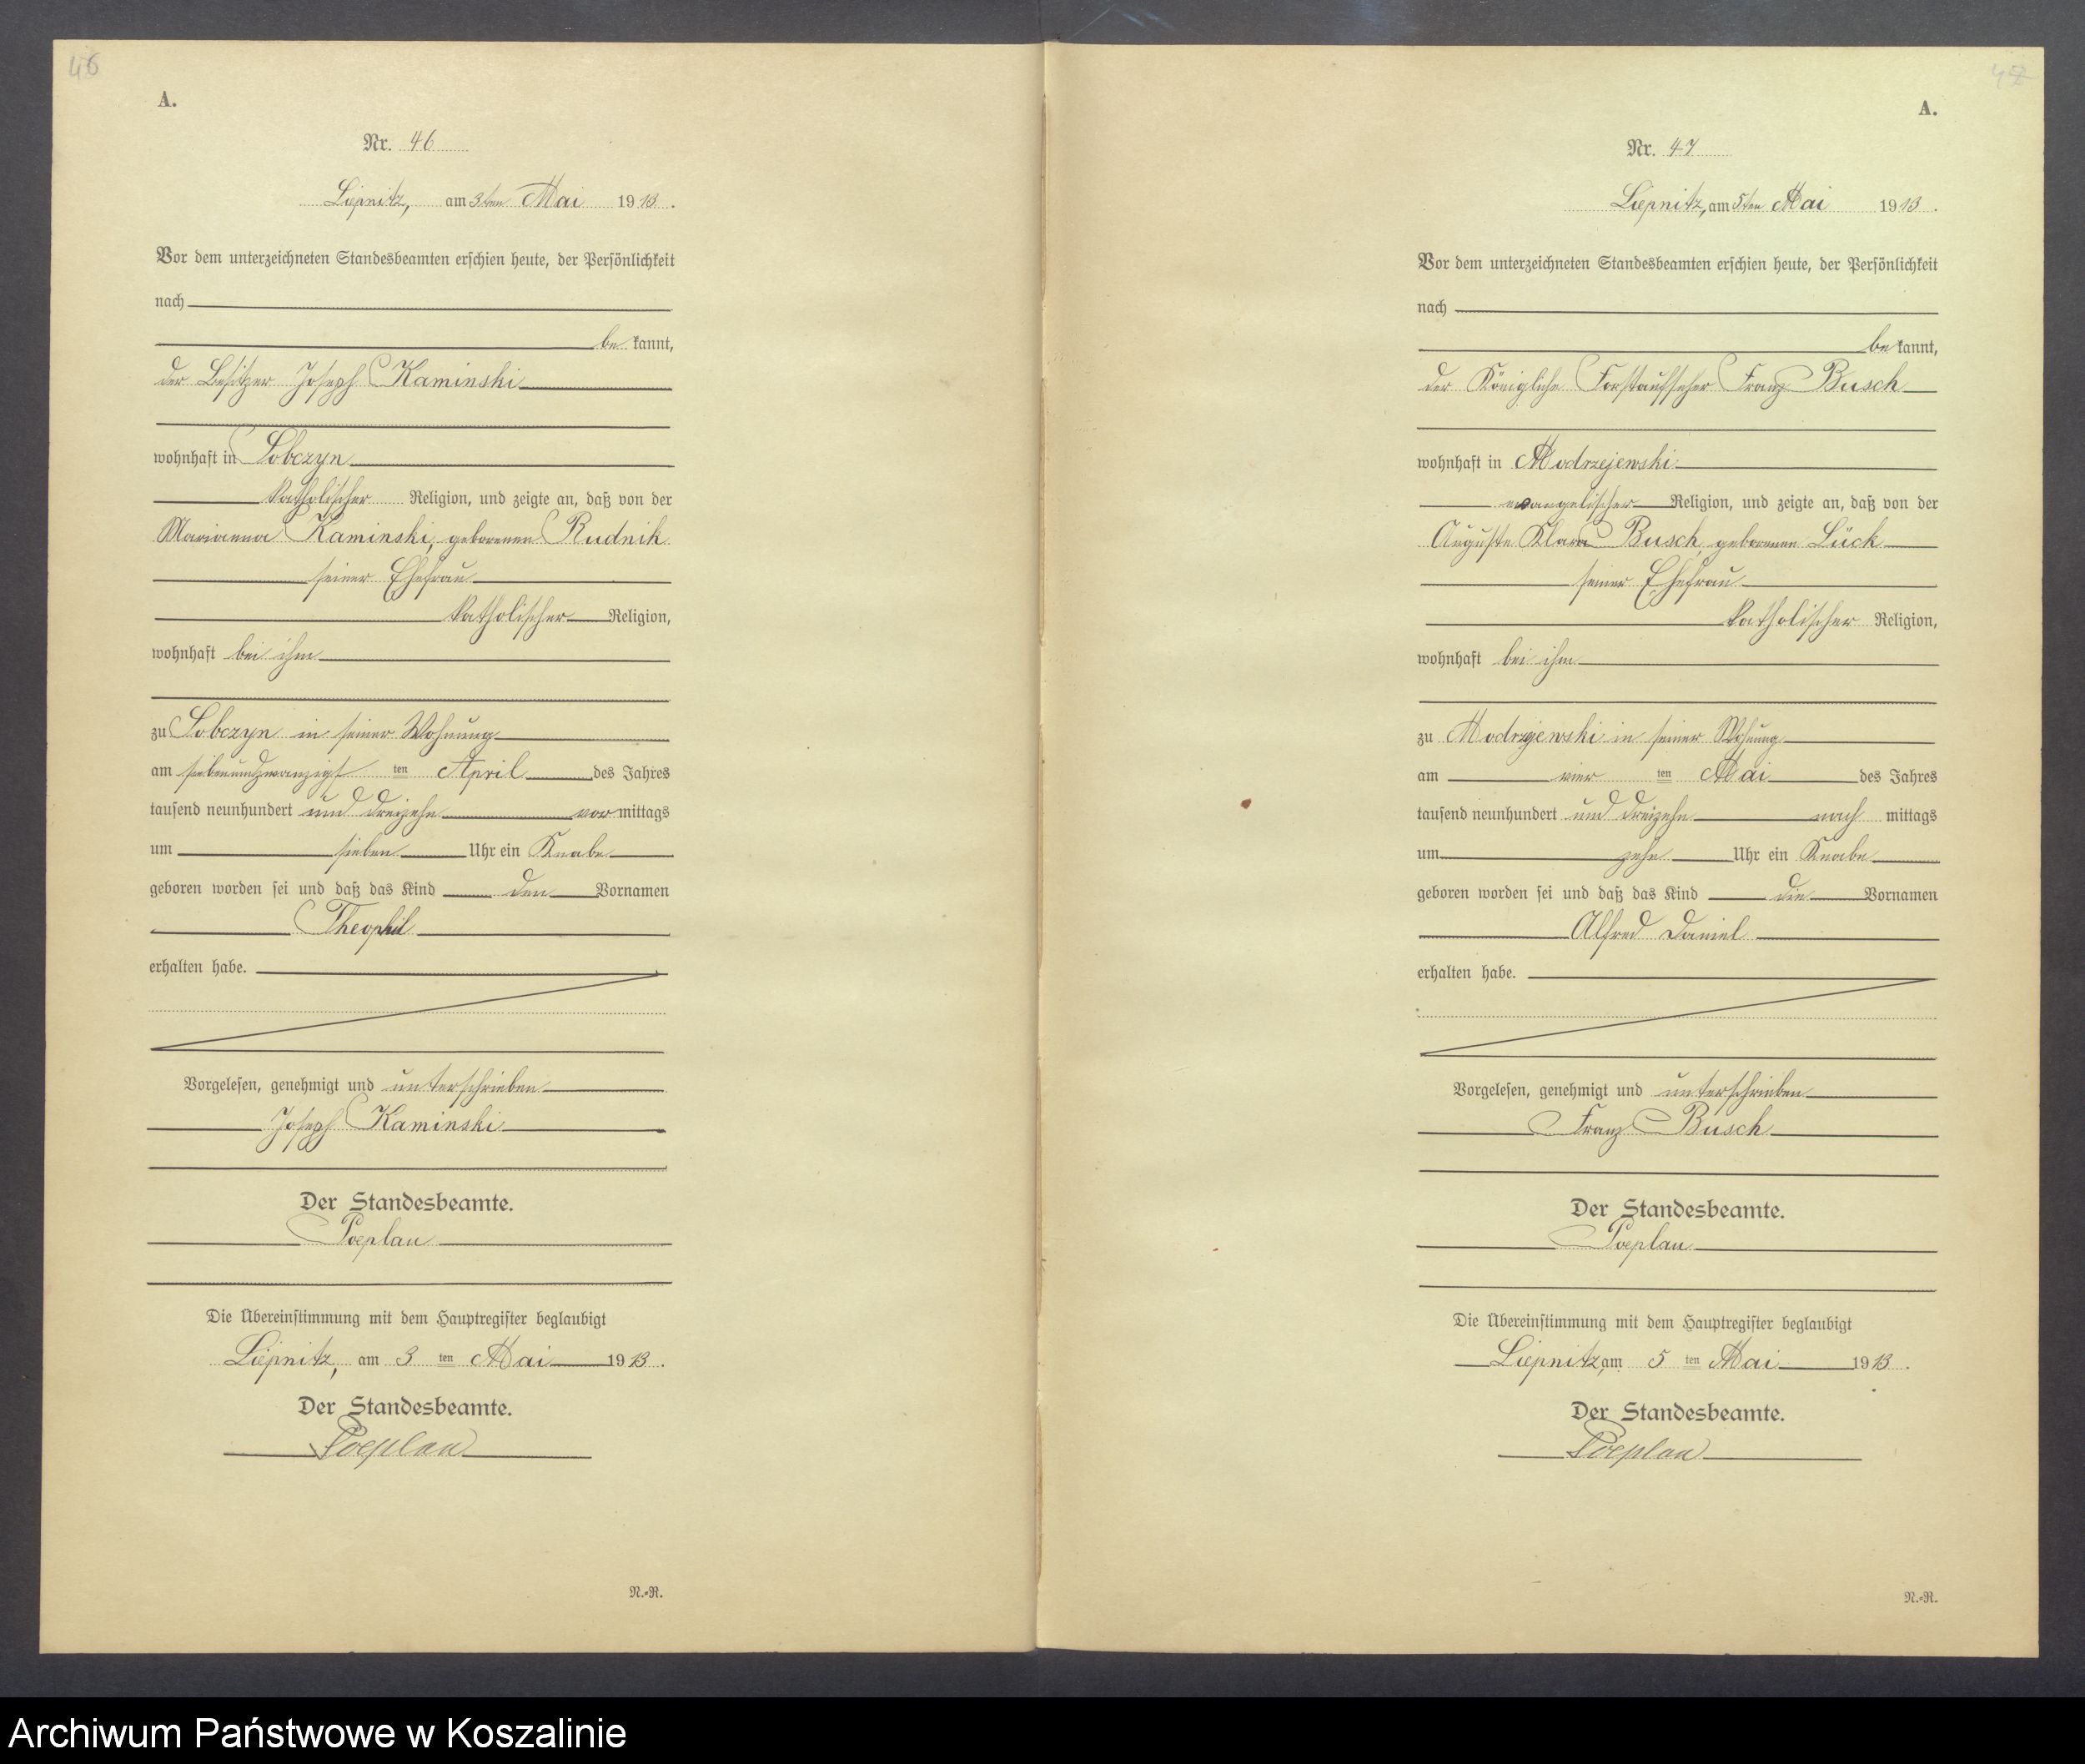 46
A.
Nr. 46
Liepnitz, am 3ten Mai 1913.
Vor dem unterzeichneten Standesbeamten erschien heute, der Persönlichkeit
nach
be kannt,
der Besitzer Joseph Kaminski
wohnhaft in Sobczyn
katholischer Religion, und zeigte an, daß von der
Marianna Kaminski, geborenen Rudnik
seiner Ehefrau
katholischer Religion,
wohnhaft bei ihm
zu Sobczyn in seiner Wohnung
am siebenundzwanzigst ten April des Jahres
tausend neunhundert und dreizehn vor mittags
um sieben Uhr ein Knabe
geboren worden sei und daß das Kind den Vornamen
Theophil
erhalten habe.
Vorgelesen, genehmigt und unterschrieben
Joseph Kaminski
Der Standesbeamte.
Poeplau
Die Übereinstimmung mit dem Hauptregister beglaubigt
Liepnitz, am 3 ten Mai 1913.
Der Standesbeamte.
Poeplau
N.-R.
47
A.
Nr. 47
Liepnitz, am 5ten Mai 1913.
Vor dem unterzeichneten Standesbeamten erschien heute, der Persönlichkeit
nach
be kannt,
der Königliche Forstaufseher Franz Busch
wohnhaft in Modrzejewski
evangelischer Religion, und zeigte an, daß von der
Auguste Klara Busch, geborenen Lück
seiner Ehefrau
katholischer Religion,
wohnhaft bei ihm
zu Modrzejewski in seiner Wohnung
am vier ten Mai des Jahres
tausend neunhundert und dreizehn nach mittags
um zehn Uhr ein Knabe
geboren worden sei und daß das Kind die Vornamen
Alfred Daniel
erhalten habe.
Vorgelesen, genehmigt und unterschrieben
Franz Busch
Der Standesbeamte.
Poeplau
Die Übereinstimmung mit dem Hauptregister beglaubigt
Liepnitz, am 5 ten Mai 1913.
Der Standesbeamte.
Poeplau
N.-R.
Archiwum Państwowe w Koszalinie